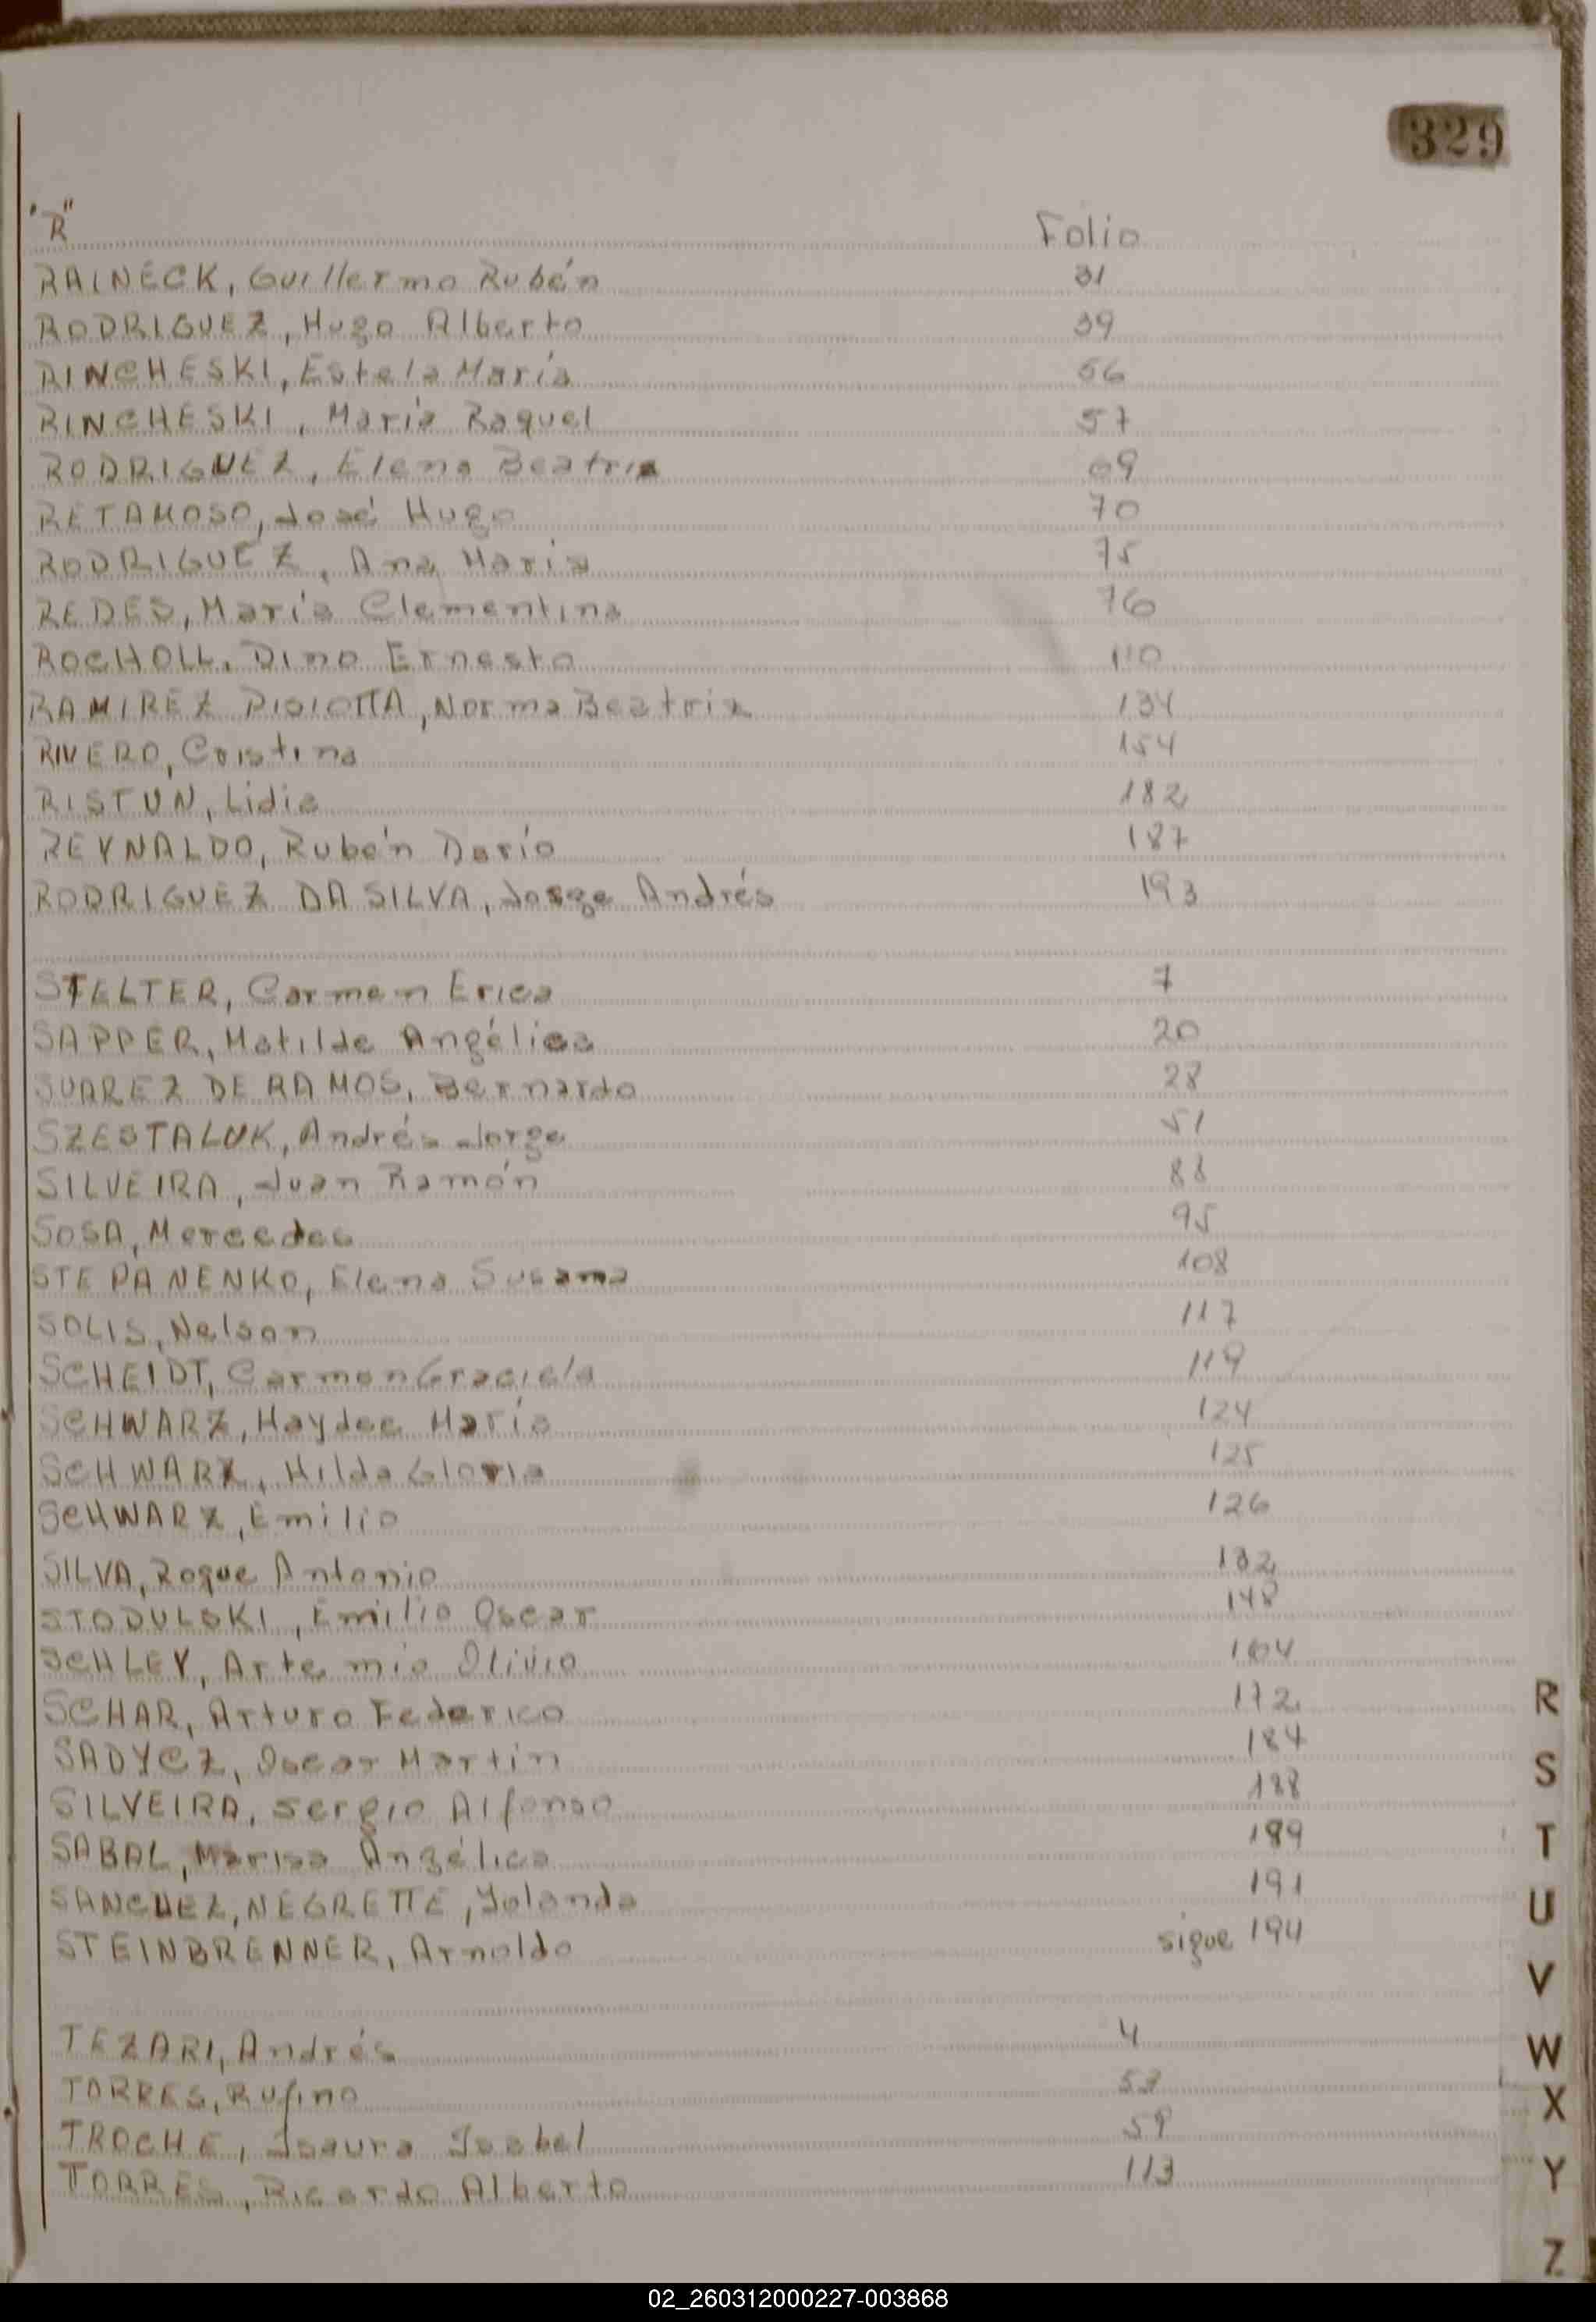 329
"R"
Folio
RAINECK, Guillermo Rubén 31
RODRIGUEZ, Hugo Alberto 39
RINCHESKI, Estela María 56
RINCHESKI, María Raquel 57
RODRIGUEZ, Elena Beatriz 69
RETAMOSO, José Hugo 70
RODRIGUEZ, Ana María 75
REDES, María Clementina 76
ROCHOLL, Dino Ernesto 110
RAMIREZ, Norma Beatriz 134
RIVERO, Cristina 154
RISTUN, Lidia 182
REYNALDO, Rubén Darío 187
RODRIGUEZ DA SILVA, Jorge Andrés 193
STELTER, Carmen Erica 7
SAPPER, Matilde Angélica 20
SUAREZ DE RAMOS, Bernardo 28
SZESTALUK, Andrés Jorge 51
SILVEIRA, Juan Ramón 88
SOSA, Mercedes 95
STEPANENKO, Elena Susana 108
SOLIS, Nelson 117
SCHEIDT, Carmen Graciela 119
SCHWARZ, Haydee María 124
SCHWARZ, Hilda Gloria 125
SCHWARZ, Emilio 126
SILVA, Roque Antonio 132
STODULSKI, Emilio Oscar 148
SCHLEY, Artemio Olivio 164
SCHAR, Arturo Federico 172
SADYCZ, Oscar Martín 184
SILVEIRA, Sergio Alfonso 188
SABAL, Marisa Angélica 189
SANCHEZ, NEGRETTE, Yolanda 191
STEINBRENNER, Arnoldo sigue 194
TEZARI, Andrés 4
TORRES, Rufino 53
TROCHE, Isaura Isabel 59
TORRES, Ricardo Alberto 113
R
S
T
U
V
W
X
Y
Z
02_260312000227-003868